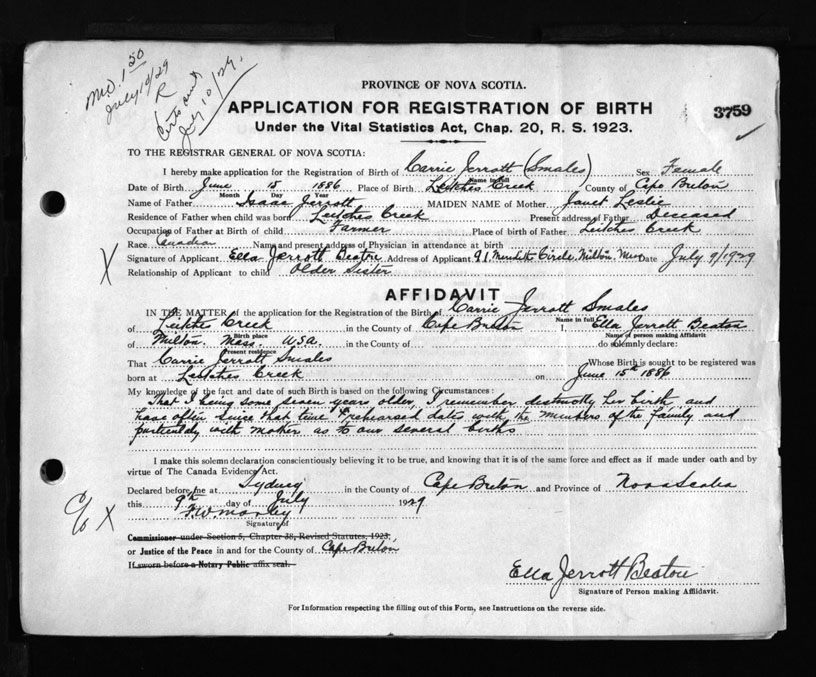 M.O. 1.50
July 10/29
R
Certs sent
July 10/29.
PROVINCE OF NOVA SCOTIA.
APPLICATION FOR REGISTRATION OF BIRTH
3759
Under the Vital Statistics Act, Chap. 20, R. S. 1923.
TO THE REGISTRAR GENERAL OF NOVA SCOTIA:
I hereby make application for the Registration of Birth of Carrie Jerrott (Smales) Sex Female
Name in full
Date of Birth June 15 1886 Place of Birth Leitches Creek County of Cape Breton
Month Day Year
Name of Father Isaac Jerrott MAIDEN NAME of Mother Janet Leslie
Residence of Father when child was born Leitches Creek Present address of Father Deceased
Occupation of Father at Birth of child Farmer Place of birth of Father Leitches Creek
Race Canadian Name and present address of Physician in attendance at birth
X Signature of Applicant Ella Jerrott Beaton Address of Applicant 91 Meredith Circle, Milton, Mass Date July 9/1929
Relationship of Applicant to child Older Sister
AFFIDAVIT
IN THE MATTER of the application for the Registration of the Birth of Carrie Jerrott Smales
Name in full
of Leitches Creek in the County of Cape Breton I, Ella Jerrott Beaton
Birth place Name of person making Affidavit
of Milton. Mass. USA. in the County of do solemnly declare:
Present residence
That Carrie Jerrott Smales Whose Birth is sought to be registered was
born at Leitches Creek on June 15th 1886
My knowledge of the fact and date of such Birth is based on the following Circumstances:
That I being some seven years older, I remember distinctly her birth and
have often since that time rehearsed dates with the members of the family and
particularly with mother as to our several births
I make this solemn declaration conscientiously believing it to be true, and knowing that it is of the same force and effect as if made under oath and by
virtue of The Canada Evidence Act.
Declared before me at Sydney in the County of Cape Breton and Province of Nova Scotia
this 9th day of July 1929
c/o X
F.W. Manley
Signature of
Commissioner under Section 5, Chapter 38, Revised Statutes, 1923,
or Justice of the Peace in and for the County of Cape Breton
If sworn before a Notary Public affix seal.
Ella Jerrott Beaton
Signature of Person making Affidavit.
For Information respecting the filling out of this Form, see Instructions on the reverse side.